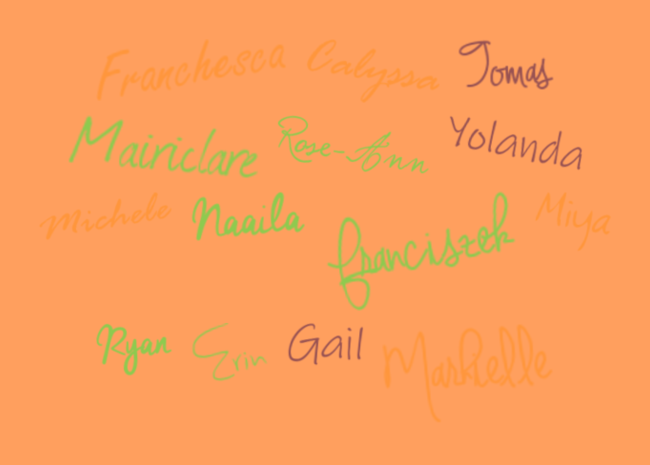 Franchesca Calyssa Tomas
Mairiclare Rose-Ann Yolanda
Michele Naaila Franciszek Miya
Ryan Erin Gail Markelle